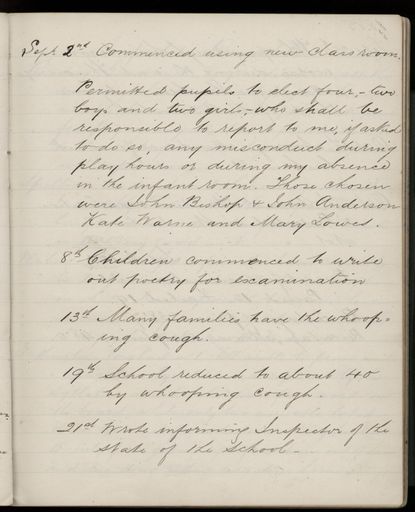 Sept. 2nd Commenced using new Class room.
Permitted pupils to elect four,- two
boys and two girls,- who shall be
responsible to report to me, if asked
to do so, any misconduct during
play hours or during my absence
in the infant room. Those chosen
were John Bishop & John Anderson
Kate Warne and Mary Lowes.
8th Children commenced to write
out poetry for examination
13th Many families have the whoop-
ing cough.
19th School reduced to about 40
by whooping cough.
21st Wrote informing Inspector of the
state of the School-